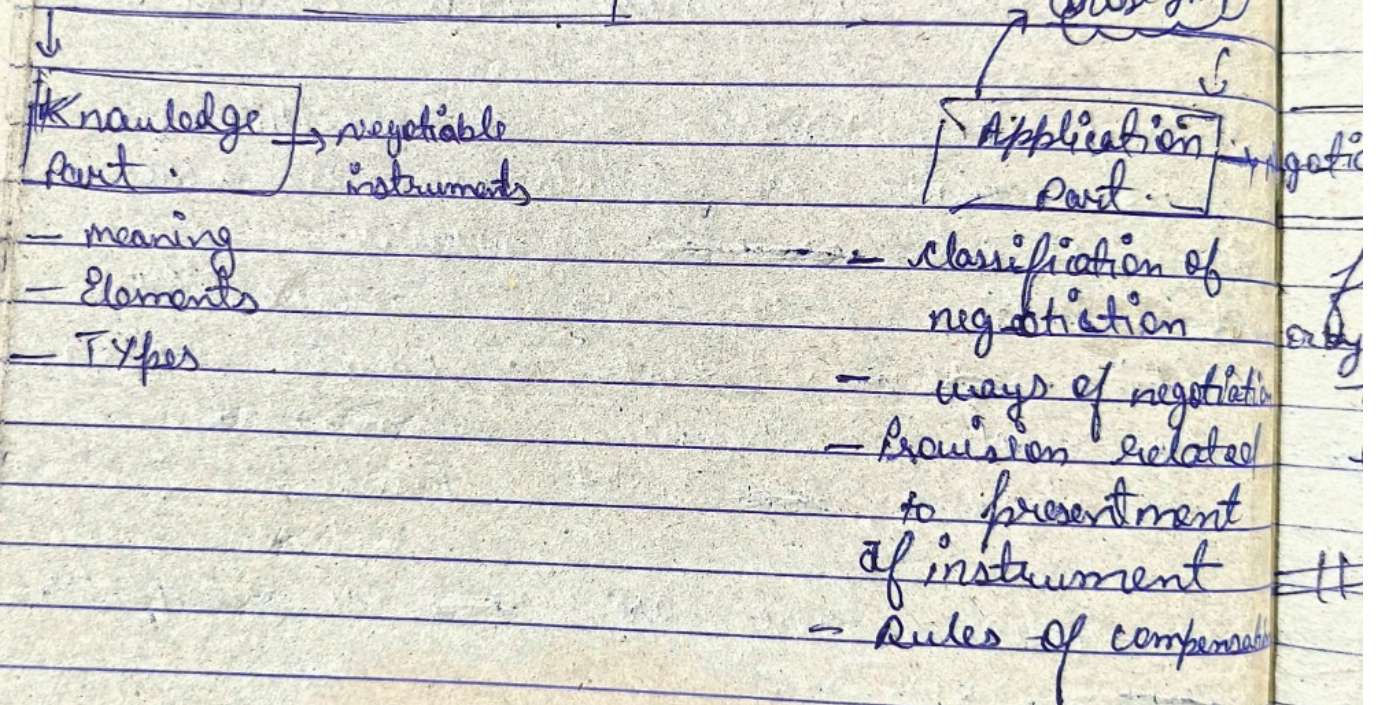 Knowledge
Part.
→ negotiable
instruments
- meaning
- Elements
- Types
Application
Part.
- Classification of
negotiation
- ways of negotiation
- Provision related
to presentment
of instrument
- Rules of